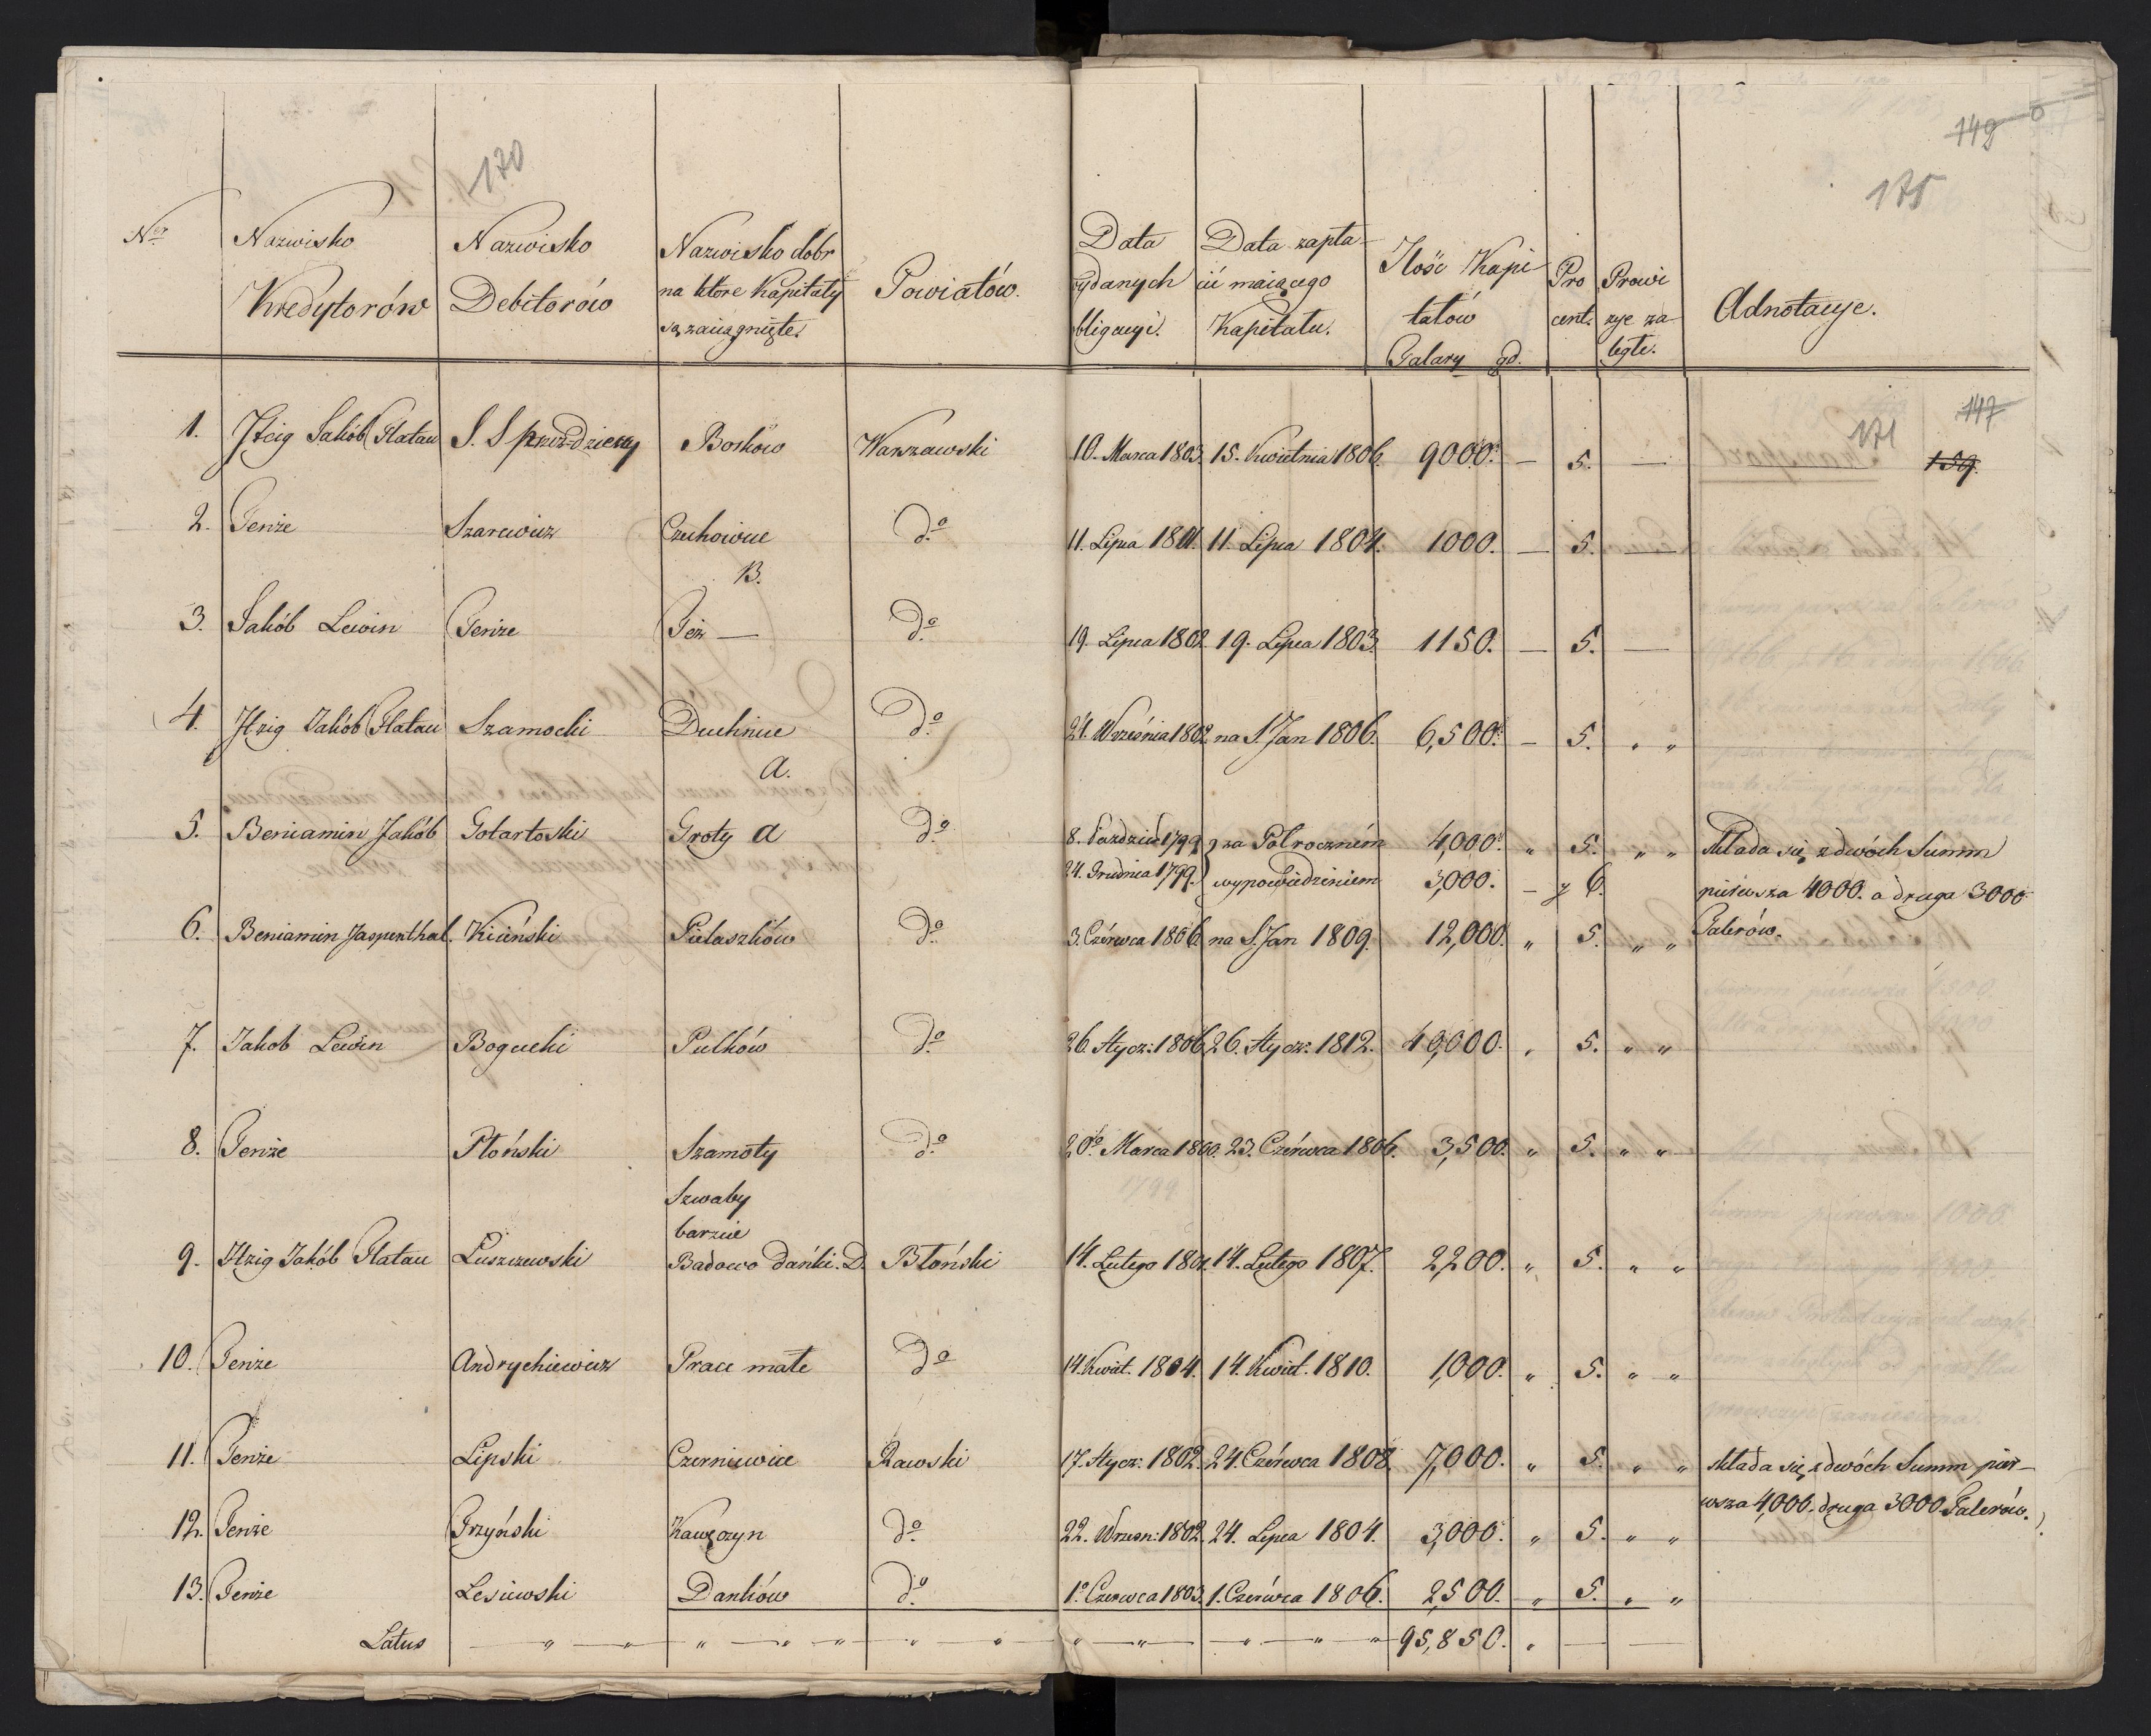 170
149
175
Nro
Nazwisko Kredytorów
Nazwisko Debitorów
Nazwisko dobr na które Kapitały są zaciągnięte.
Powiatów.
Data wydanych obligacyi.
Data zapłacić maiącego Kapitału.
Ilość Kapitałów
Talary gd.
Pro cent.
Prowizye zaległe.
Adnotacye.
147
171
159.
1. Itzig Jakób Flatau S. S Bosków Warszawski 10. Marca 1803. 15. Kwietnia 1806. 9000. — 5. —
2. Tenże Szarewicz Czechowice B. do 11. Lipca 1801. 11. Lipca 1804. 1000. — 5. —
3. Jakób Lewin Tenże Też — do 19. Lipca 1802. 19. Lipca 1803. 1150. — 5. —
4. Itzig Jakób Flatau Szamocki Duchnice A. do 24. Września 1802 na S. Jan 1806. 6,500. — 5. " "
5. Beniamin Jakób Gotartoski Groty A do 8. Paździer 1799 za Półroczném 4,000. " 5. " " Składa się z dwóch Summ
24. Grudnia 1799. wypowiedzeniem 3,000. — 6. pierwsza 4000. a druga 3000
Talerów.
6. Beniamin Jaspenthal. Kiciński Pietaszków do 3. Czérwca 1806. na S. Jan 1809. 12,000. " 5. " "
7. Jakob Lewin Bogucki Pulków do 26. Stycz: 1806 26. Stycz: 1812. 40,000. " 5. " "
8. Tenże Płoński Szamoty do 20. Marca 1800. 23. Czérwca 1806. 3,500. " 5. " "
1799
Szwaby
barzcie
9. Itzig Jakób Flatau Łuszczewski Badowo Dańki. D. Błoński 14. Lutego 1801. 14. Lutego 1807. 2,200. " 5. " "
10. Tenże Andrychiewicz Prace małe do 14. Kwiet. 1804. 14. Kwiet. 1810. 1,000. " 5. " "
11. Tenże Lipski Czerniewice Rawski 17. Stycz: 1802. 24. Czérwca 1808. 7,000. " 5. " " składa się z dwóch Summ pier-
wsza 4,000. druga 3000 Talerów.
12. Tenże Trzyński Kawęczyn do 22. Wrzesn: 1802. 24. Lipca 1804. 3,000. " 5. " "
13. Tenże Lesiewski Dańków do 1o Czerwca 1803. 1. Czérwca 1806. 2,500. " 5. " "
Latus 95,850. "